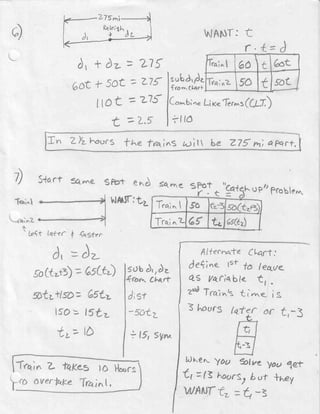 6)
275mi
Raleigh
d₁ d₂
WANT: t
r · t = d
Train1 60 t 60t
Train2 50 t 50t
d₁ + d₂ = 275
60t + 50t = 275 subd₁,d₂ from chart
110t = 275 Combine Like Terms (C.L.T.)
t = 2.5 ÷110
In 2½ hours the trains will be 275 mi apart.
7) Start same spot end same spot "catch up" Problem
r · t = d
Train1
Train2
WANT: t₂
Train1 50 t₂+3 50(t₂+3)
Train2 65 t₂ 65(t₂)
left later & faster
d₁ = d₂
50(t₂+3) = 65(t₂) sub d₁,d₂ from chart
50t₂+150 = 65t₂ dist
150 = 15t₂ -50t₂
t₂ = 10 ÷15, sym
Train 2 takes 10 hours
to overtake Train1.
Alternate Chart:
define 1st to leave
as variable t₁.
2nd Train's time is
3 hours later or t₁-3
t
t₁
t₁-3
when you solve you get
t₁ = 13 hours, but they
WANT t₂ = t₁-3